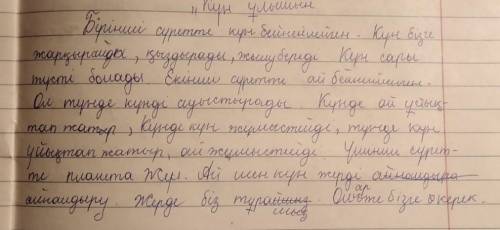 „Күн ұлышын
Бірінші суретте күн бейнеленген. Күн бізге
жарқырайды, қыздырады, жылу береді Күн сары
түсті болады Екінші суретте ай бейнеленген.
Ол түнде күнді ауыстырады. Күнде ай ұйық-
тап жатыр, Күнде күн жұмыстейді, түнде күн
ұйықтап жатыр, ай жұмыстейді. Үшінші сурет-
те планета Жер. Ай мен күн жерді айналдыра
айналдыру. Жерде біз тұрамыз. Ол өте бізге керек.